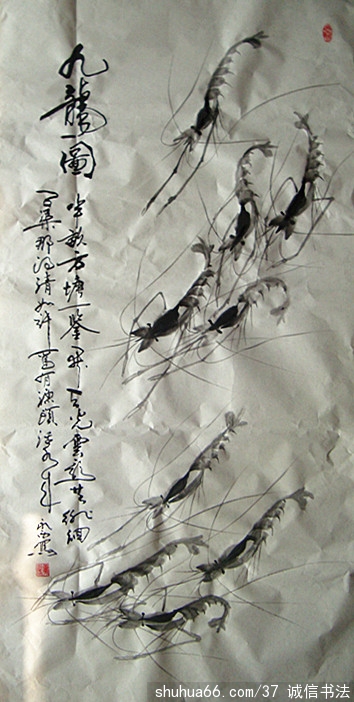 九龍圖
半畝方塘一鉴开天光雲影共徘徊
问渠那得清如许為有源頭活水来
shuhua66.com/37 诚信书法